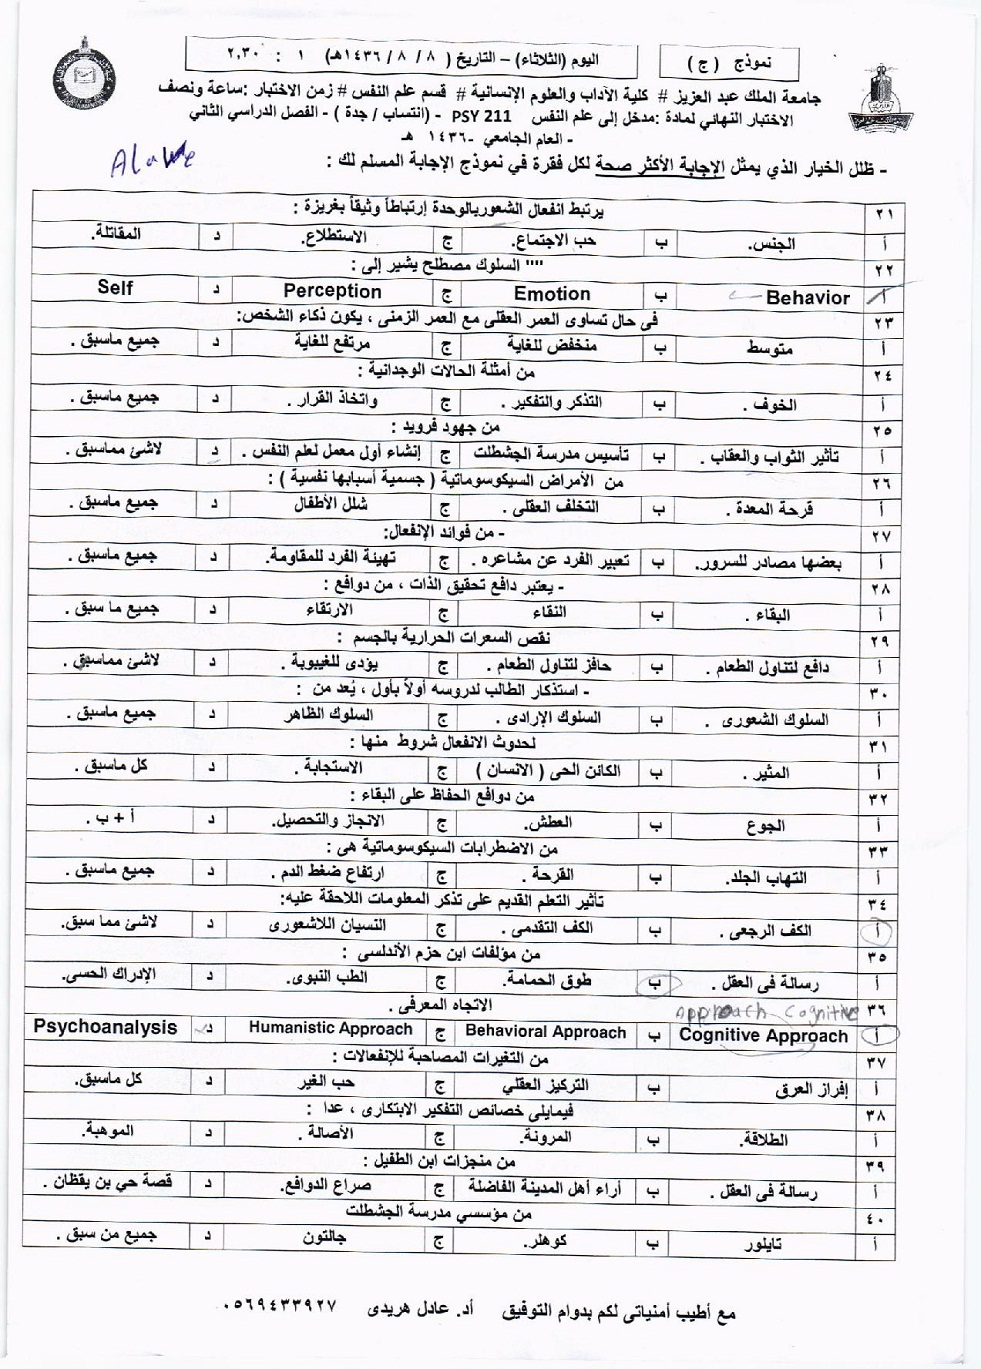 نموذج ( ج )
اليوم (الثلاثاء) – التاريخ ( ٨ / ٨ / ١٤٣٦هـ) ١ : ٢.٣٠
جامعة الملك عبد العزيز # كلية الآداب والعلوم الإنسانية # قسم علم النفس # زمن الاختبار :ساعة ونصف
الاختبار النهائي لمادة :مدخل إلى علم النفس PSY 211 - (انتساب / جدة ) - الفصل الدراسي الثاني
- العام الجامعي -١٤٣٦ هـ
- ظلل الخيار الذي يمثل الإجابة الأكثر صحة لكل فقرة في نموذج الإجابة المسلم لك :
٢١ يرتبط انفعال الشعور بالوحدة إرتباطاً وثيقاً بغريزة :
أ الجنس. ب حب الاجتماع. ج الاستطلاع. د المقاتلة.
٢٢ """ السلوك مصطلح يشير إلى :
أ Behavior ب Emotion ج Perception د Self
٢٣ فى حال تساوى العمر العقلى مع العمر الزمنى ، يكون ذكاء الشخص:
أ متوسط ب منخفض للغاية ج مرتفع للغاية د جميع ماسبق .
٢٤ من أمثلة الحالات الوجدانية :
أ الخوف . ب التذكر والتفكير . ج واتخاذ القرار . د جميع ماسبق .
٢٥ من جهود فرويد :
أ تأثير الثواب والعقاب . ب تأسيس مدرسة الجشطلت ج إنشاء أول معمل لعلم النفس . د لاشئ مماسبق .
٢٦ من الأمراض السيكوسوماتية ( جسمية أسبابها نفسية ) :
أ قرحة المعدة . ب التخلف العقلى . ج شلل الأطفال د جميع ماسبق .
٢٧ - من فوائد الإنفعال:
أ بعضها مصادر للسرور. ب تعبير الفرد عن مشاعره . ج تهيئة الفرد للمقاومة. د جميع ماسبق .
٢٨ - يعتبر دافع تحقيق الذات ، من دوافع :
أ البقاء . ب النقاء ج الارتقاء د جميع ما سبق .
٢٩ نقص السعرات الحرارية بالجسم :
أ دافع لتناول الطعام . ب حافز لتناول الطعام . ج يؤدى للغيبوبة . د لاشئ مماسبق .
٣٠ - استذكار الطالب لدروسه أولاً بأول ، يُعد من :
أ السلوك الشعورى . ب السلوك الإرادى . ج السلوك الظاهر د جميع ماسبق .
٣١ لحدوث الانفعال شروط منها :
أ المثير . ب الكائن الحى ( الانسان ) ج الاستجابة . د كل ماسبق .
٣٢ من دوافع الحفاظ على البقاء :
أ الجوع ب العطش. ج الانجاز والتحصيل. د أ + ب .
٣٣ من الاضطرابات السيكوسوماتية هى :
أ التهاب الجلد. ب القرحة . ج ارتفاع ضغط الدم . د جميع ماسبق .
٣٤ تأثير التعلم القديم على تذكر المعلومات اللاحقة عليه:
أ الكف الرجعى . ب الكف التقدمى . ج النسيان اللاشعورى د لاشئ مما سبق.
٣٥ من مؤلفات ابن حزم الأندلسى :
أ رسالة فى العقل . ب طوق الحمامة. ج الطب النبوى. د الإدراك الحسى.
٣٦ الاتجاه المعرفى . Approach Cognitive
أ Cognitive Approach ب Behavioral Approach ج Humanistic Approach د Psychoanalysis
٣٧ من التغيرات المصاحبة للإنفعالات:
أ إفراز العرق ب التركيز العقلي ج حب الغير د كل ماسبق.
٣٨ فيمايلي خصائص التفكير الابتكارى ، عدا :
أ الطلاقة. ب المرونة. ج الأصالة . د الموهبة.
٣٩ من منجزات ابن الطفيل :
أ رسالة فى العقل . ب أراء أهل المدينة الفاضلة ج صراع الدوافع. د قصة حي بن يقظان .
٤٠ من مؤسسي مدرسة الجشطلت
أ تايلور ب كوهلر. ج جالتون د جميع من سبق .
مع أطيب أمنياتى لكم بدوام التوفيق أد. عادل هريدى ٠٥٦٩٤٣٣٩٢٧